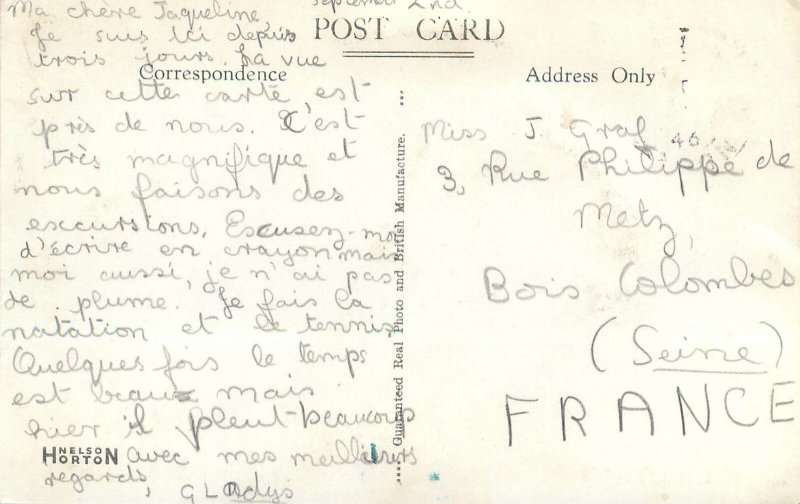 September 2nd.
Ma chère Jaqueline,
Je suis ici depuis
trois jours. La vue
sur cette carte est
près de nous. C'est
très magnifique et
nous faisons des
excursions. Escusez-moi
d'écrire en crayon mais
moi aussi, je n'ai pas
de plume. Je fais la
natation et le tennis.
Quelques fois le temps
est beau mais
hier il pleut beaucoup
avec mes meilleurs
regards,
GLadys
NELSO
HORTON
POST CARD
Correspondence
Address Only
Guaranteed Real Photo and British Manufacture.
Miss J. Graf
3, Rue Philippe de
Metz,
Bois Colombes
(Seine)
FRANCE